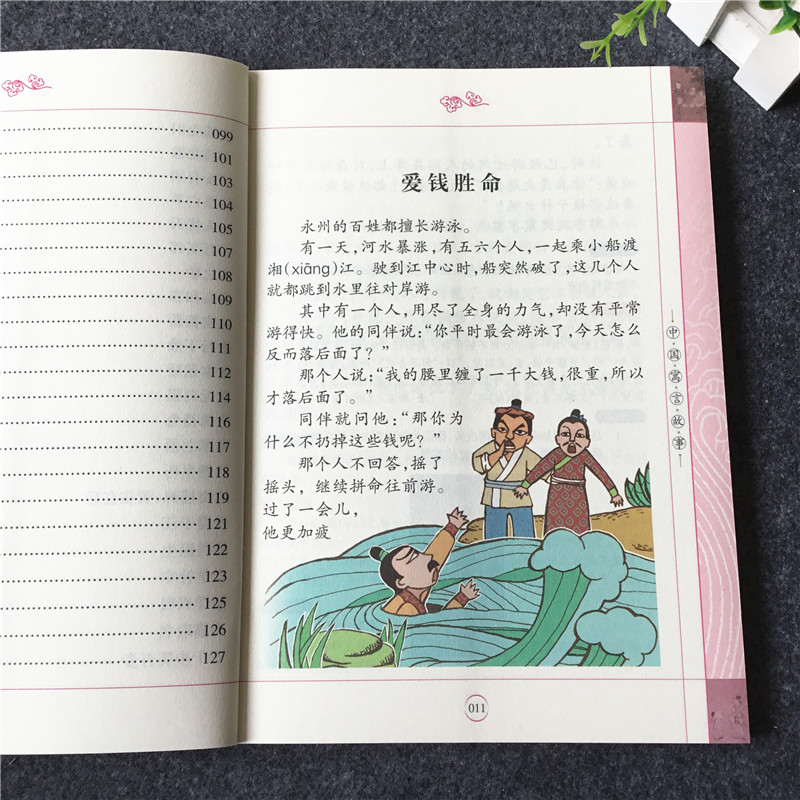 099
101
103
104
105
107
108
109
110
111
112
114
116
117
118
119
121
122
123
125
126
127
爱钱胜命
永州的百姓都擅长游泳。
有一天，河水暴涨，有五六个人，一起乘小船渡
湘(xiāng)江。驶到江中心时，船突然破了，这几个人
就都跳到水里往对岸游。
其中有一个人，用尽了全身的力气，却没有平常
游得快。他的同伴说：“你平时最会游泳了，今天怎么
反而落后面了？”
那个人说：“我的腰里缠了一千大钱，很重，所以
才落后面了。”
同伴就问他：“那你为
什么不扔掉这些钱呢？
那个人不回答，摇了
摇头，继续拼命往前游。
过了一会儿，
他更加疲
中·国·寓·言·故·事
011